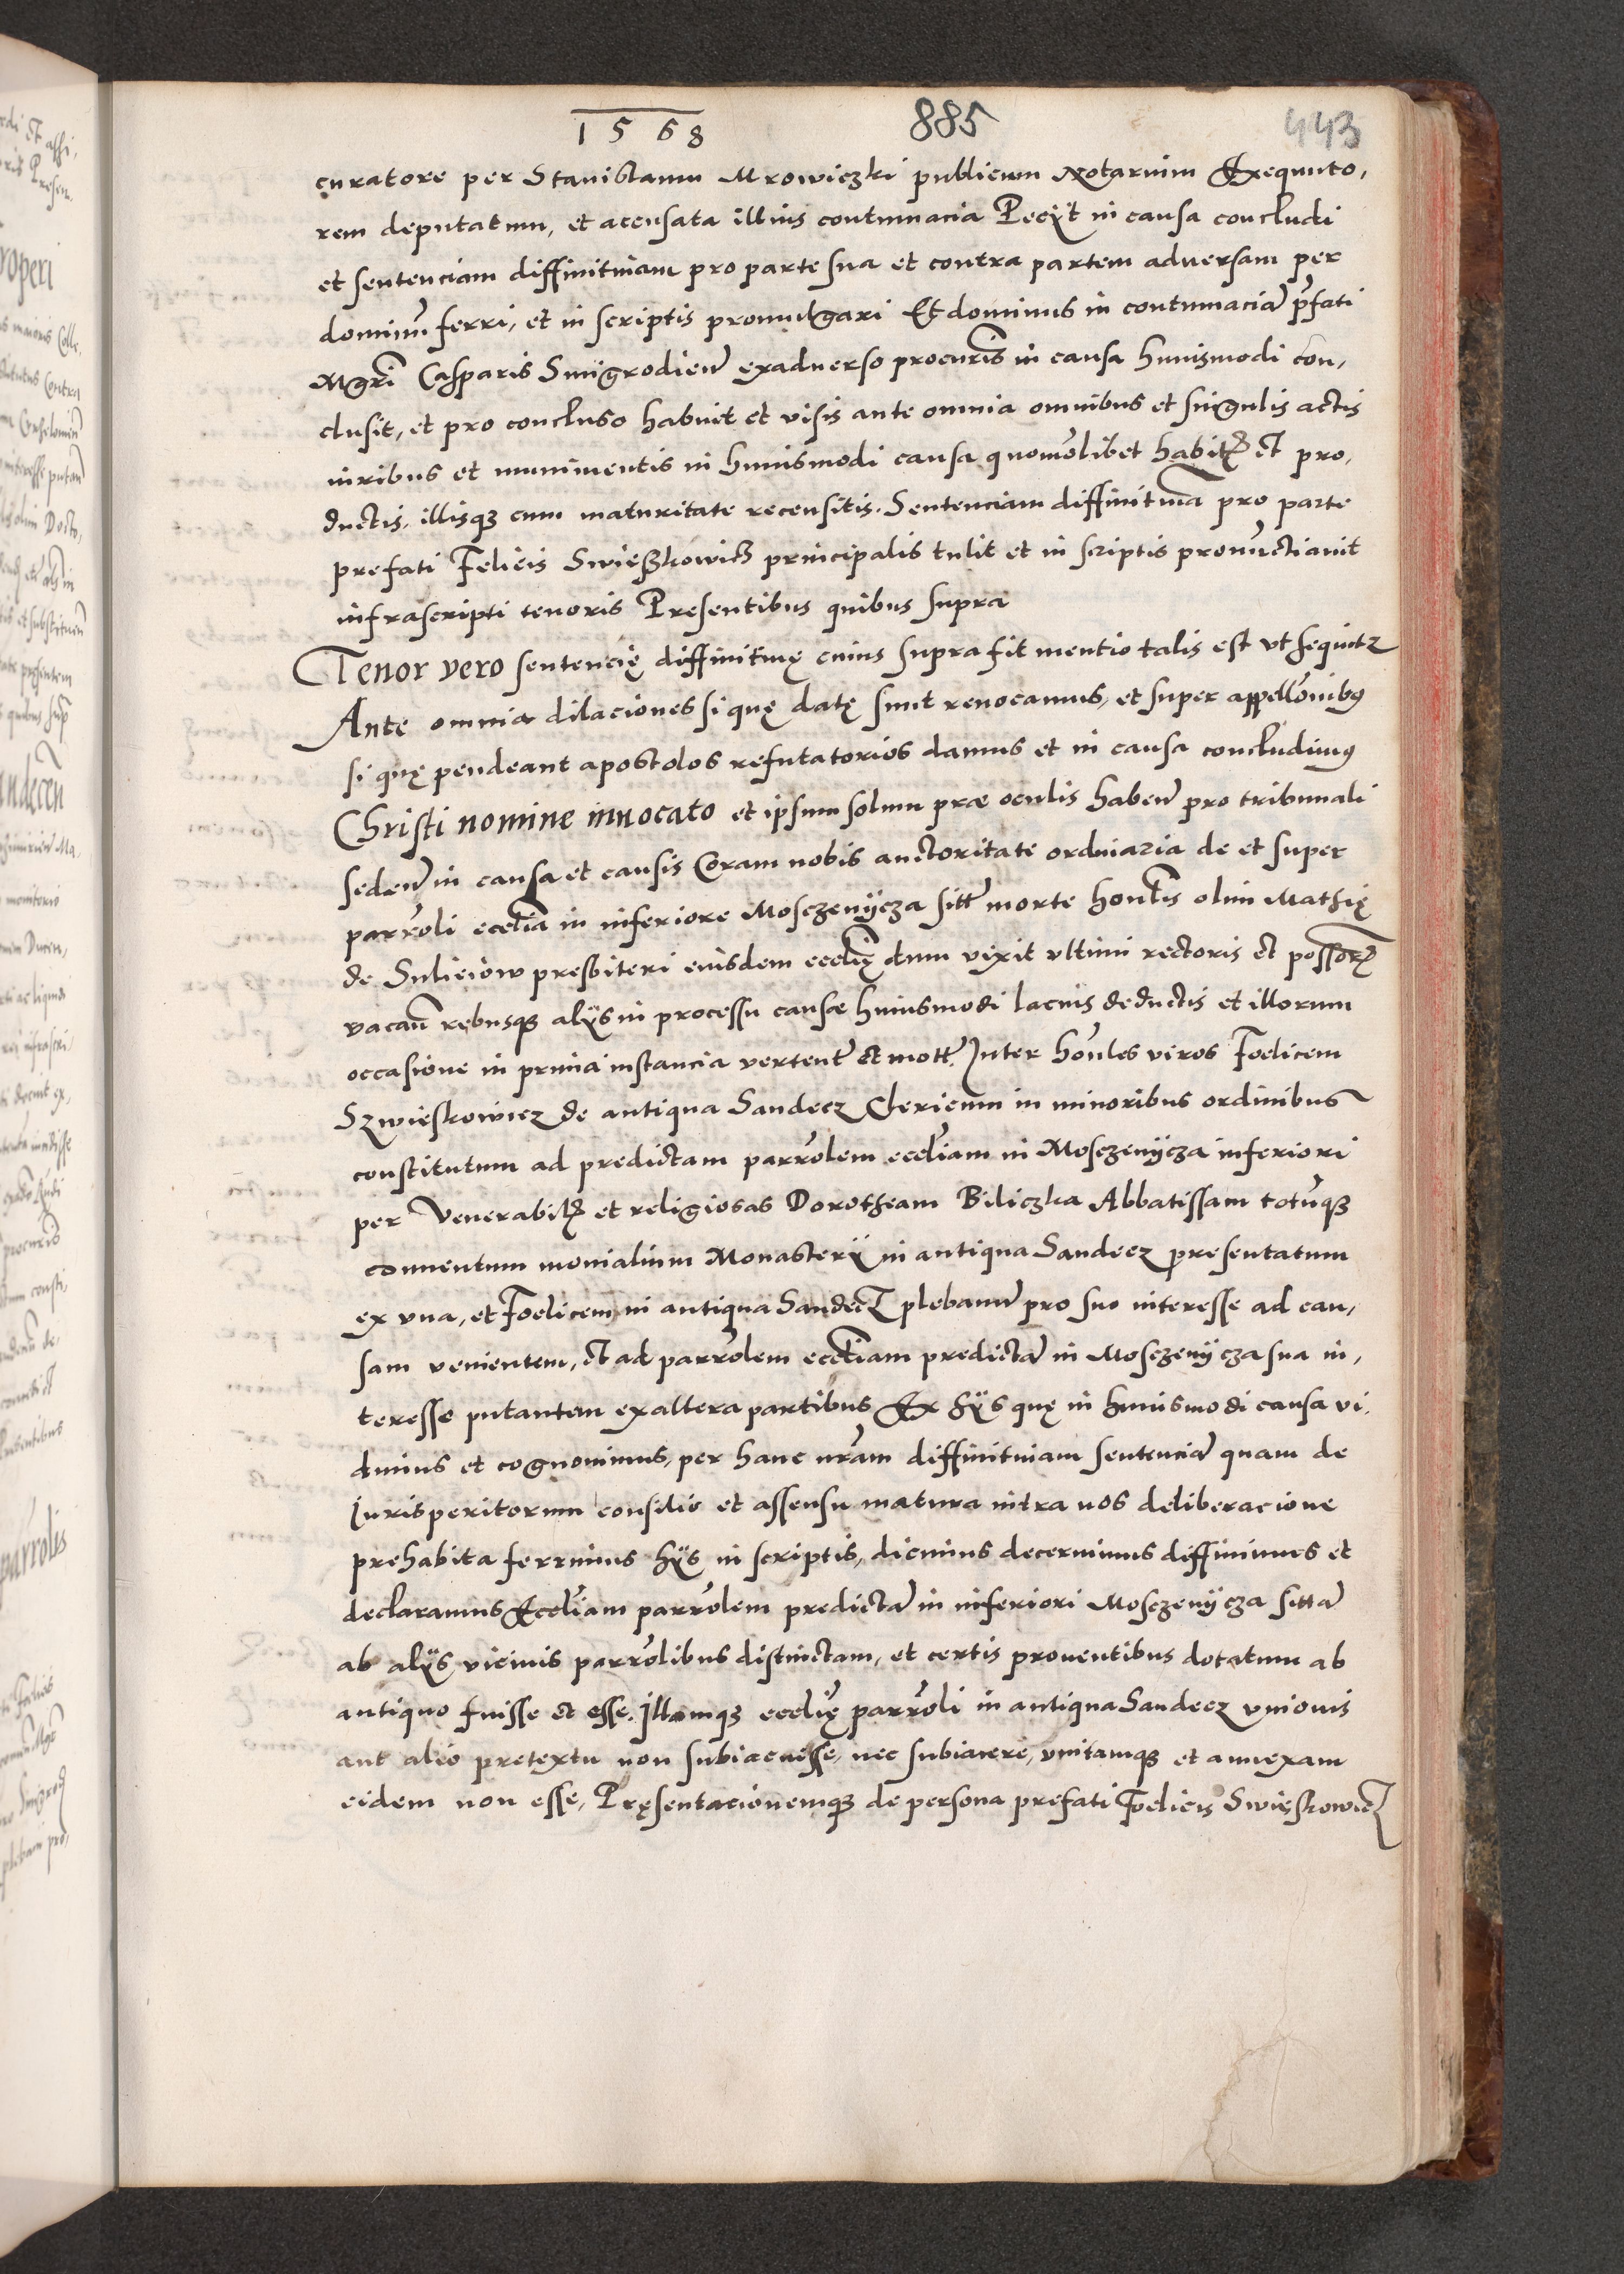 1568 885 443
curatore per Stanislaum Mrowiczki publicum Notarium Exequuto,
rem deputatum, et accusata illius contumacia Pecÿt in causa concludi
et sentenciam diffinitiuam pro parte sua et contra partem aduersam per
dominū ferri, et in scriptis promulgari Et dominus in contumaciā p̄fati
Mgr̄i Casparis Smigrodien̄ exaduerso procur̄is in causa huiusmodi con,
clusit, et pro concluso habuit et visis ante omnia omnibus et singulis actis
iuribus et munimentis in huiusmodi causa quomōlibet habitꝫ et pro,
ductis, illisqꝫ cum maturitate recensitis. Sentenciam diffinitiuā pro parte
prefati Felicis Swieskowicz principalis tulit et in scriptis pronunctiauit
infrascripti tenoris Presentibus quibus supra
Tenor vero sentencię diffinitiuę cuius supra fit mentio talis est vt sequitꝛ
Ante omnia dilaciones si quę datę sunt reuocamus, et super appellōnibꝰ
si quę pendeant apostolos refutatorios damus et in causa concludimꝰ
Christi nomine inuocato et ipsum solum præ oculis haben̄ pro tribunali
seden̄ in causa et causis Coram nobis auctoritate ordinaria de et super
parr̄oli eccl̄ia in inferiore Mosczenÿcza sitt̄ morte hon̄lis olim Mathię
de Suliciow presbiteri eiusdem eccl̄ię dum vixit vltimi rectoris et poss̄orꝫ
vacan̄ rebusqꝫ alÿs in processu causæ huiusmodi lacius deductis et illorum
occasione in prima instancia verten̄t et mott̄. Inter hōnles viros Foelicem
Szwieskowicz de antiqua Sandecz Clericum in minoribus ordinibus
constitutum ad predictam parr̄olem eccl̄iam in Mosczenÿcza inferiori
per Venerabilꝫ et religiosas Dorotheam Biliczka Abbatissam totūqꝫ
conuentum monialium Monasterÿ in antiqua Sandecz presentatum
ex vna, et Foelicem in antiqua Sandecz plebanū pro suo interesse ad cau,
sam venientem, et ad parr̄olem eccl̄iam predictā in Mosczenÿcza sua in,
teresse putantem ex altera partibus Ex hÿs quę in huiusmodi causa vi,
dimus et cognouimus, per hanc nr̄am diffinitiuam sentenciā quam de
Iurisperitorum consilio et assensu matura intra nos deliberacione
prehabita ferrimus hÿs in scriptis, dicimus decernimus diffinimus et
declaramus Eccl̄iam parr̄olem predictā in inferiori Mosczenÿcza sittā
ab alÿs vicinis parr̄olibus distinctam, et certis prouentibus dotatum ab
antiquo fuisse et esse. Illamqꝫ eccl̄ię parr̄oli in antiqua Sandecz vnionis
aut alio pretextu non subiacuisse, nec subiacere, vnitamqꝫ et annexam
eidem non esse, Pręsentacionemqꝫ de persona prefati Foelicis Swięskowicz